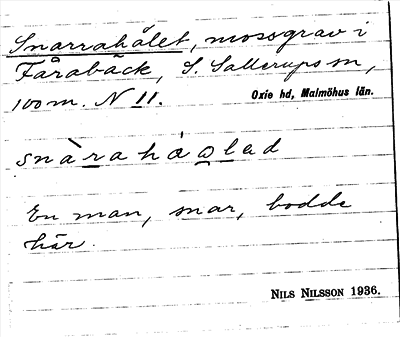 Snarrahålet, mossgrav i
Fårabäck, S. Sallerups sn,
100 m. N 11.
Oxie hd, Malmöhus län.
snàrahá̀ƍled
En man, snar, bodde
här.
NILS NILSSON 1936.